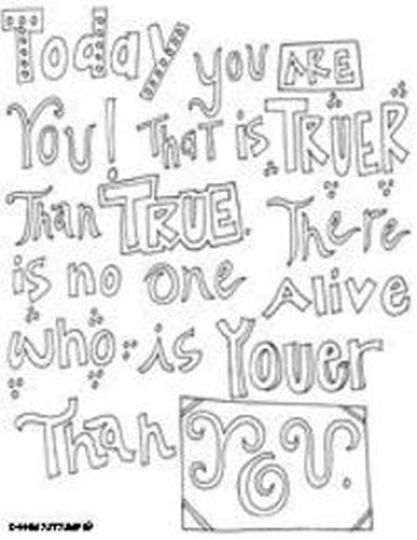 Today you ARE
You! That is TRUER
Than TRUE. There
is no one Alive
who is Youer
Than YOU.